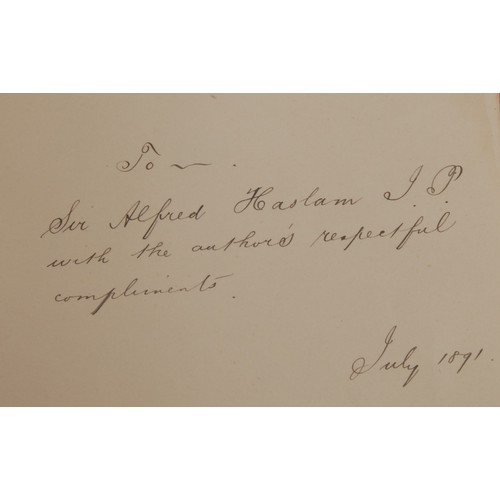 To —.
Sir Alfred Haslam J.P.
with the author's respectful
compliments.
July 1891.